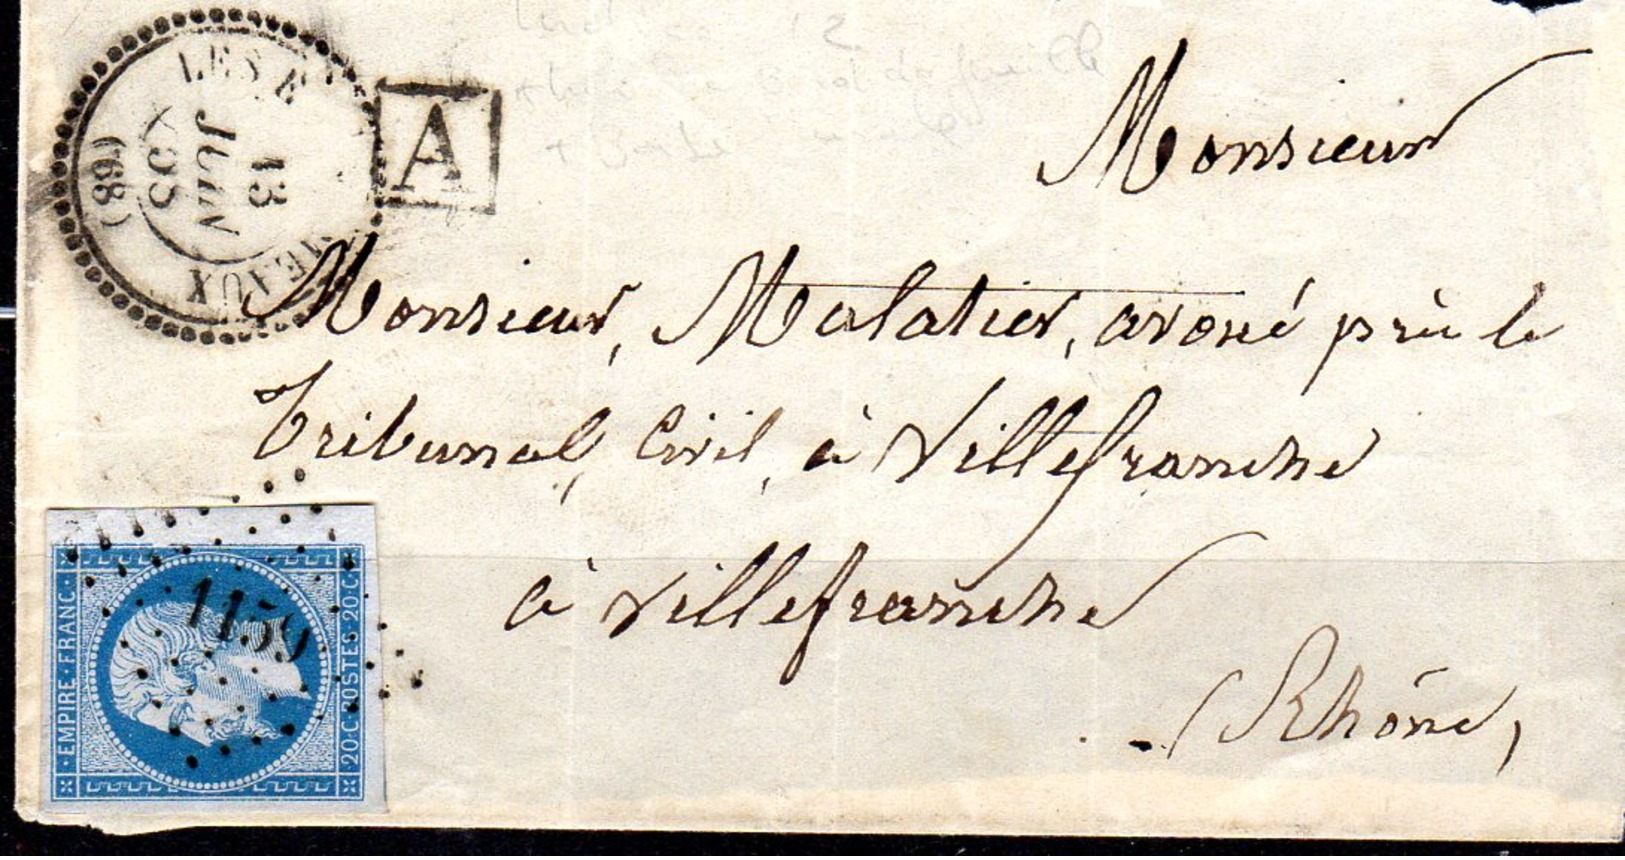 LES
13
JUIN
(68)
EAUX
A
Monsieur
Monsieur, Malatier, avoué près le
Tribunal, Civil, à Villefranche
à Villefranche
Rhône,
1159
EMPIRE·FRANC·
20·C·POSTES·20·C